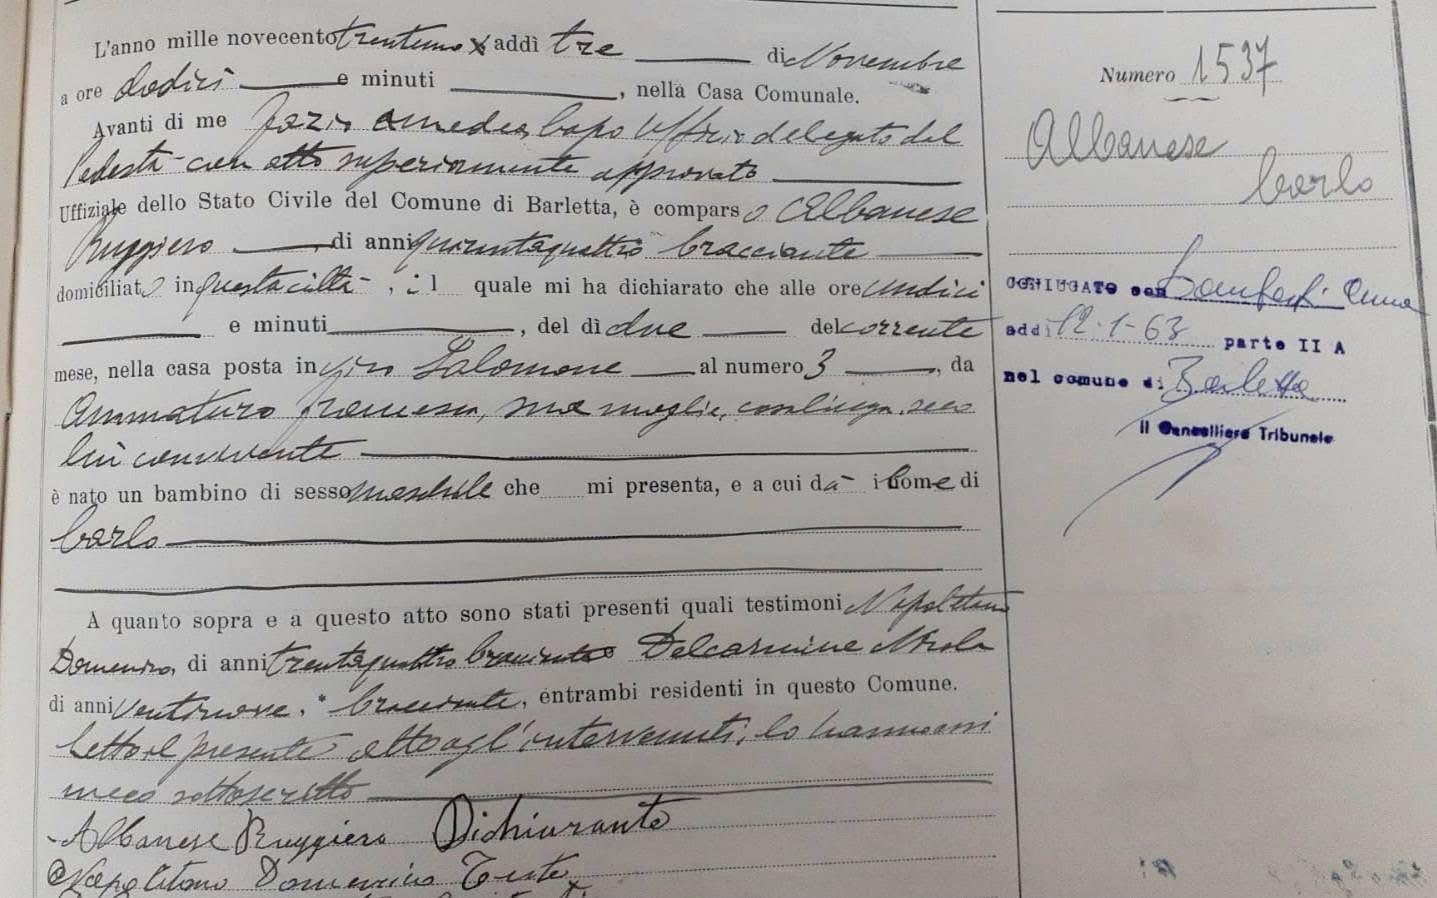 L'anno mille novecento trentuno X addì tre di Novembre
a ore dodici e minuti , nella Casa Comunale.
Avanti di me Fazio Amedeo Capo Ufficio delegato del
Podestà con atto superiormente approvato
Uffiziale dello Stato Civile del Comune di Barletta, è comparso Albanese
Ruggiero di anni quarantaquattro bracciante
domiciliato in questa città , il quale mi ha dichiarato che alle ore undici
e minuti , del dì due del corrente
mese, nella casa posta in giro Salomone al numero 3 , da
Ammaturo Francesca, sua moglie, casalinga, seco
lui convivente
è nato un bambino di sesso maschile che mi presenta, e a cui dà il nome di
Carlo
A quanto sopra e a questo atto sono stati presenti quali testimoni Napoletano
Domenico, di anni trentaquattro bracciante Delcarmine Nicola
di anni ventinove, bracciante, entrambi residenti in questo Comune.
Letto il presente atto agl'intervenuti, lo hanno essi
meco sottoscritto
Albanese Ruggiero Dichiarante
Napoletano Domenico Teste
Numero 1537
Albanese
Carlo
CONIUGATO con Anna
addì 12-1-63 parte II A
nel comune di Barletta
Il Cancelliere Tribunale